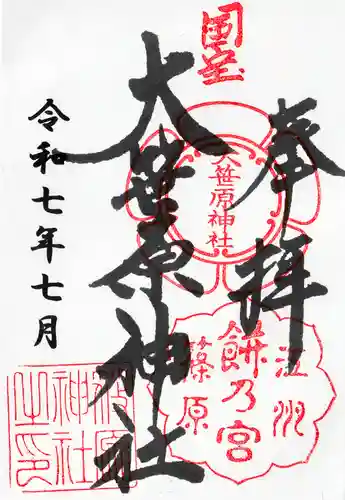 奉拝
国宝
大笹原神社
令和七年七月
大笹原神社
江州
餅乃宮
篠原
笹原
神社
之印